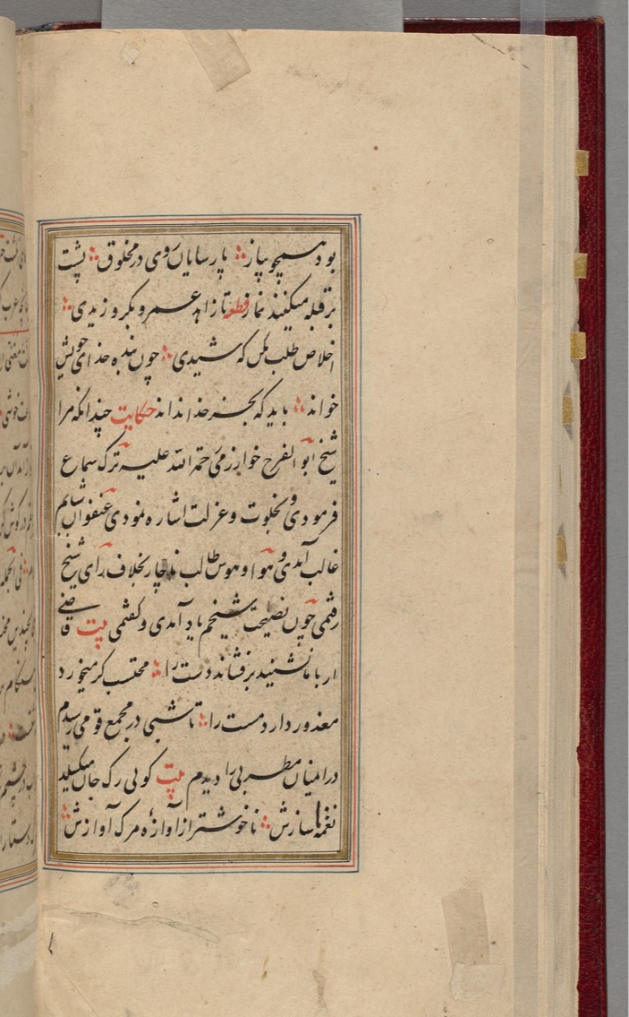 بود همچو پیاز پارسایان روی در مخلوق پشت
بر قبله میکنند نماز قطعه تا زاهد عمرو و بکر و زیدی
اخلاص طلب مکن که شیدی چون بنده خدای خویش
خواند باید که بجز خدا نداند حکایت چندانکه مرا
شیخ ابو الفرح خوارزمی رحمة الله علیه ترک سماع
فرمودی و بخلوت و عزلت اشاره نمودی عنفوان شبابم
غالب آمدی و هوا و هوس طالب ناچار بخلاف رای شیخ
رفتمی چون نصیحت شیخم یاد آمدی و گفتمی بیت قاضی
ار با ما نشیند برفشاند دست را محتسب گر میخورد
معذور دارد مست را تا شبی در مجمع قومی رسیدم
در آنمیان مطربی را دیدم بیت گویی رگ جان میگسلد
نغمهٔ سازش ناخوشتر از آوازهٔ مرگ آوازش